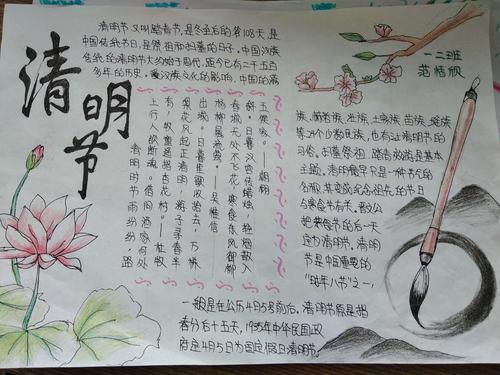 清明节
清明节又叫踏青节，是冬至后的第108天，是
中国传统节日，是祭祖和扫墓的日子。中国汉族
传统的清明节大约始于周代，距今已有二千五百
多年的历史。受汉族文化的影响，中国的满
一二班
范恬欣
清明时节雨纷纷，路
上行人欲断魂。借问酒家何处
有，牧童遥指杏花村。——杜牧
梨花风起正清明，游子寻春半
出城。日暮笙歌收拾去，万株
杨柳属流莺。——吴惟信
春城无处不飞花，寒食东风御柳
斜。日暮汉宫传蜡烛，轻烟散入
五侯家。——韩翃
族、赫哲族、壮族、土家族、苗族、瑶族
等24个少数民族，也有过清明节的
习俗。扫墓祭祖、踏青郊游是基本
主题。清明最早只是一种节气的
名称，其变成纪念祖先的节日
与寒食节有关。晋文公
把寒食节的后一天
定为清明节。清明
节是中国重要的
“时年八节”之一，
一般是在公历4月5号前后。清明节原是指
春分后十五天，1935年中华民国政
府定4月5日为国定假日清明节。